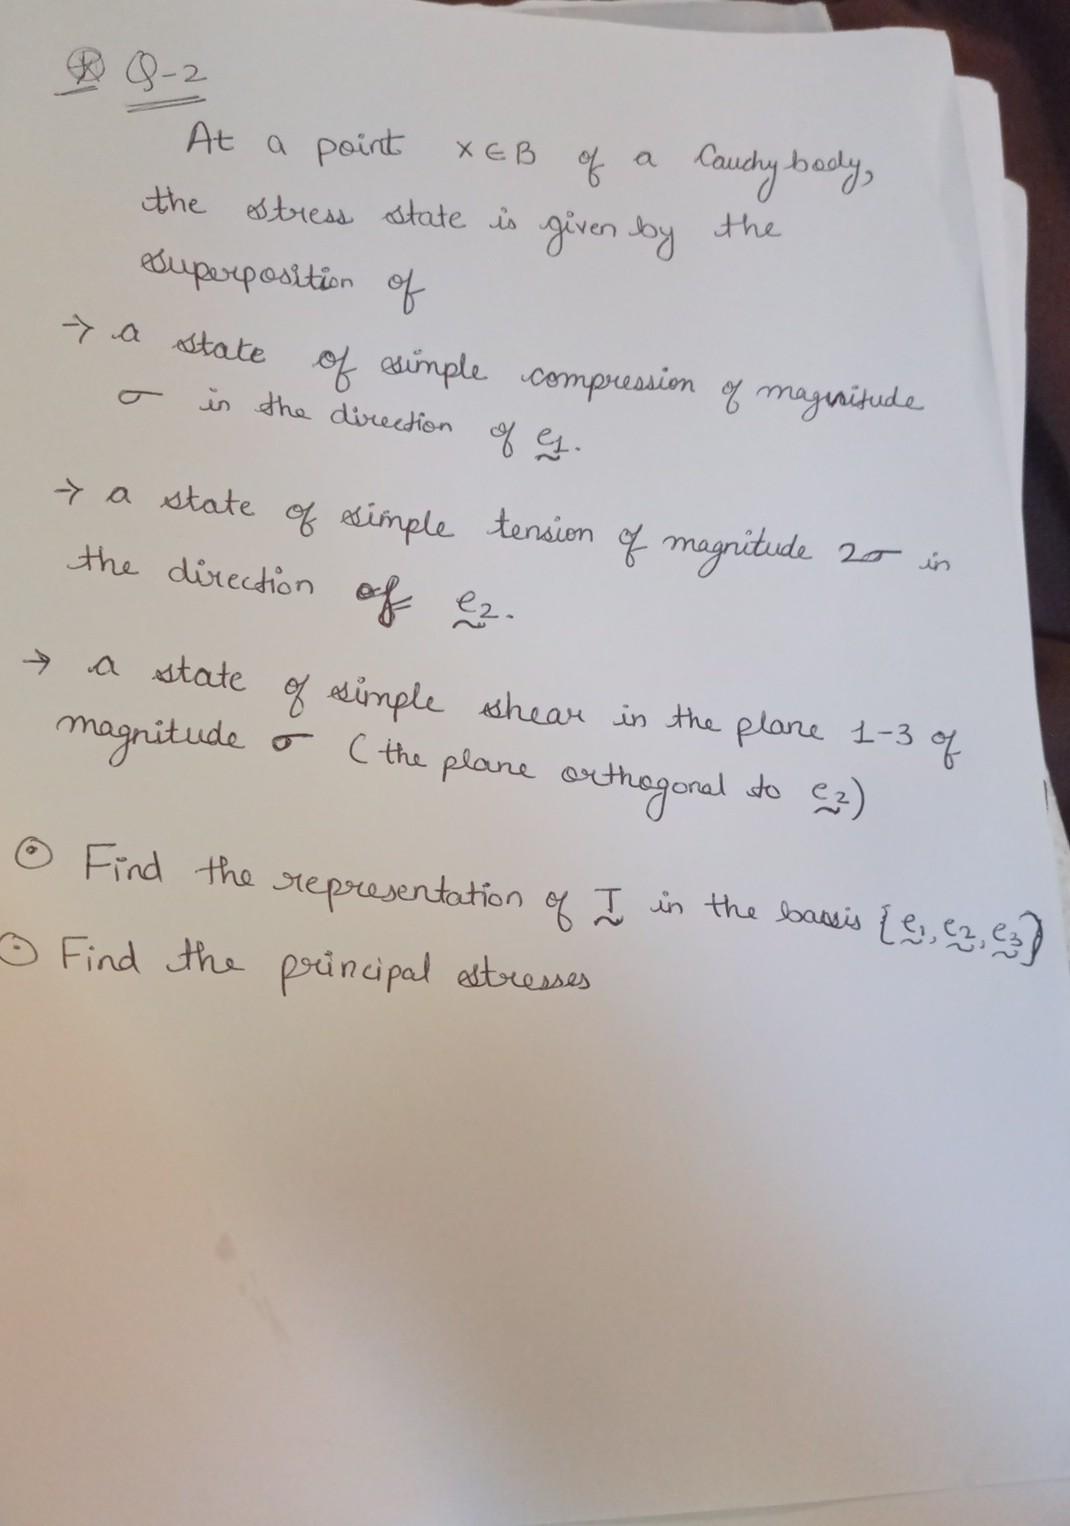 Ⓧ Q-2
At a point x∈B of a Cauchy body,
the stress state is given by the
superposition of
→ a state of simple compression of magnitude
σ in the direction of e1.
→ a state of simple tension of magnitude 2σ in
the direction of e2.
→ a state of simple shear in the plane 1-3 of
magnitude σ (the plane orthogonal to e2)
⊙ Find the representation of T in the basis {e1, e2, e3}
⊙ Find the principal stresses